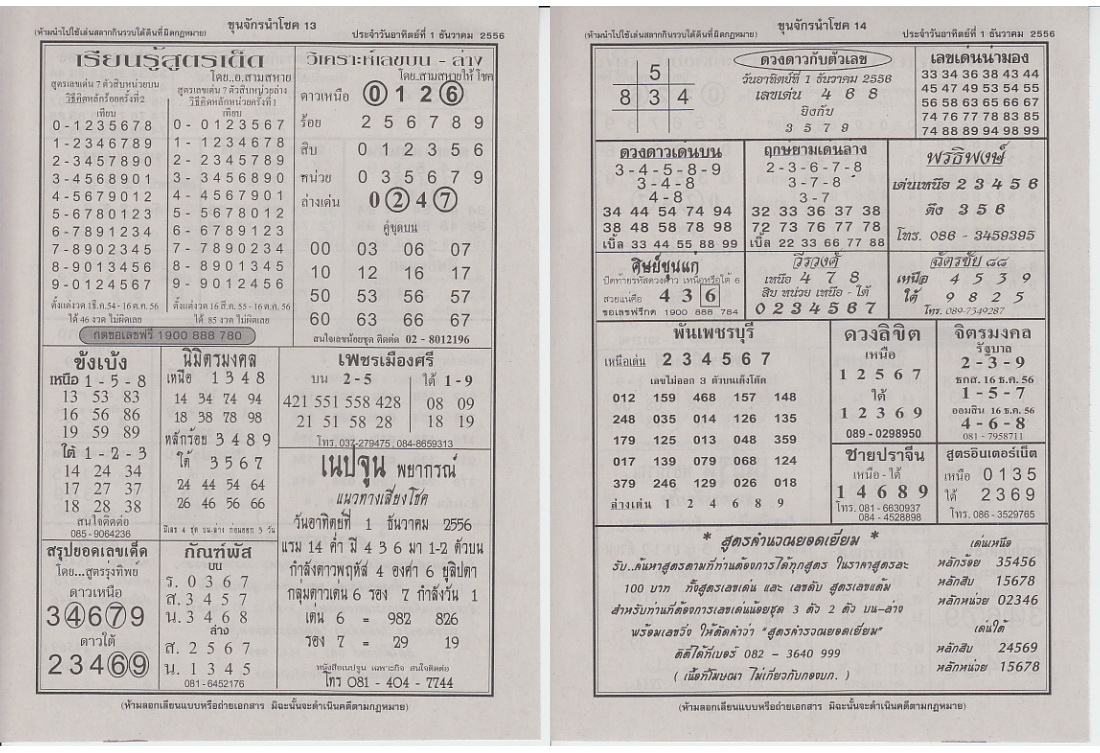 ขุนจักรนำโชค 13
(ห้ามนำไปใช้เล่นสลากกินรวบใต้ดินที่ผิดกฎหมาย) ประจำวันอาทิตย์ที่ 1 ธันวาคม 2556
เรียนรู้สูตรเด็ด
โดย..อ.สามสหาย
สูตรเลขเด่น 7 ตัวสิบหน่วยบน
วิธีคิดหลักร้อยครั้งที่2
เทียบ
0-1235678
1-2346789
2-3457890
3-4568901
4-5679012
5-6780123
6-7891234
7-8902345
8-9013456
9-0124567
ตั้งแต่งวด 1ธ.ค.54 - 16 ต.ค. 56
ได้ 46 งวด ไม่ผิดเลย
สูตรเลขเด่น 7 ตัวสิบหน่วยล่าง
วิธีคิดหลักหน่วยครั้งที่1
เทียบ
0- 0123567
1- 1234678
2- 2345789
3- 3456890
4- 4567901
5- 5678012
6- 6789123
7- 7890234
8- 8901345
9- 9012456
ตั้งแต่งวด 16 มี.ค. 55 - 16 ต.ค. 56
ได้ 85 งวด ไม่ผิดเลย
กดขอเลขฟรี 1900 888 780
วิเคราะห์เลขบน - ล่าง
โดย..สามสหายให้โชค
ดาวเหนือ 0 1 2 6
ร้อย 2 5 6 7 8 9
สิบ 0 1 2 3 5 6
หน่วย 0 3 5 6 7 9
ล่างเด่น 0 2 4 7
คู่ชุดบน
00 03 06 07
10 12 16 17
50 53 56 57
60 63 66 67
สนใจเลขน้อยชุด ติดต่อ 02 - 8012196
ขังเบ้ง
เหนือ 1 - 5 - 8
13 53 83
16 56 86
19 59 89
ใต้ 1 - 2 - 3
14 24 34
17 27 37
18 28 38
สนใจติดต่อ
085-9064236
นิมิตรมงคล
เหนือ 1 3 4 8
14 34 74 94
18 38 78 98
หลักร้อย 3 4 8 9
ใต้ 3 5 6 7
24 44 54 64
26 46 56 66
เพชรเมืองศรี
บน 2-5 ใต้ 1-9
421 551 558 428 08 09
21 51 58 28 18 19
โทร. 037-279475, 084-8659313
เนปจูน พยากรณ์
แนวทางเสี่ยงโชค
วันอาทิตย์ที่ 1 ธันวาคม 2556
แรม 14 ค่ำ มี 4 3 6 มา 1-2 ตัวบน
กำลังดาวพฤหัส 4 องศา 6 ยุลิปดา
กลุ่มดาวเด่น 6 รอง 7 กำลังวัน 1
เด่น 6 = 982 826
รอง 7 = 29 19
หนังสือเนปจูน เฉพาะกิจ สนใจติดต่อ
โทร 081 - 404 - 7744
สรุปยอดเลขเด็ด
โดย...สูตรรุ่งทิพย์
ดาวเหนือ
3 4 6 7 9
ดาวใต้
2 3 4 6 9
กัณฑ์พัส
บน
ร. 0 3 6 7
ส. 3 4 5 7
น. 3 4 6 8
ล่าง
ส. 2 5 6 7
น. 1 3 4 5
081-6452176
(ห้ามลอกเลียนแบบหรือถ่ายเอกสาร มิฉะนั้นจะดำเนินคดีตามกฎหมาย)
ขุนจักรนำโชค 14
(ห้ามนำไปใช้เล่นสลากกินรวบใต้ดินที่ผิดกฎหมาย) ประจำวันอาทิตย์ที่ 1 ธันวาคม 2556
5
8 3 4
ดวงดาวกับตัวเลข
วันอาทิตย์ที่ 1 ธันวาคม 2556
เลขเด่น 4 6 8
ยิงกับ
3 5 7 9
เลขเด่นน่ามอง
33 34 36 38 43 44
45 47 49 53 54 55
56 58 63 65 66 67
74 76 77 78 83 85
74 88 89 94 98 99
ดวงดาวเด่นบน
3-4-5-8-9
3-4-8
4-8
34 44 54 74 94
38 48 58 78 98
เบิ้ล 33 44 55 88 99
ฤกษ์ยามเด่นล่าง
2-3-6-7-8
3-7-8
3-7
32 33 36 37 38
72 73 76 77 78
เบิ้ล 22 33 66 77 88
พรธิพงษ์
เด่นเหนือ 2 3 4 5 6
ดึง 3 5 6
โทร. 086 - 3459395
ศิษย์ขุนแก่
ปิดท้ายรหัสดวงดาว เหนือหรือใต้ 6
สวยแน่คือ 4 3 6
ขอเลขฟรีกด 1900 888 784
วีรวงศ์
เหนือ 4 7 8
สิบ หน่วย เหนือ - ใต้
0 2 3 4 5 6 7
ฉัตรชัย ๘๘
เหนือ 4 5 3 9
ใต้ 9 8 2 5
โทร. 089-7349287
พันเพชรบุรี
เหนือเด่น 2 3 4 5 6 7
เลขไม่ออก 3 ตัวบนเต็งโต๊ด
012 159 468 157 148
248 035 014 126 135
179 125 013 048 359
017 139 079 068 124
379 246 129 026 018
ล่างเด่น 1 2 4 6 8 9
ดวงลิขิต
เหนือ
1 2 5 6 7
ใต้
1 2 3 6 9
089 -0298950
จิตรมงคล
รัฐบาล
2 - 3 - 9
ธกส. 16 ธ.ค. 56
1 - 5 - 7
ออมสิน 16 ธ.ค. 56
4 - 6 - 8
081 - 7958711
ชายปราจีน
เหนือ - ใต้
1 4 6 8 9
โทร. 081 - 6630937
084 - 4528898
สูตรอินเตอร์เน็ต
เหนือ 0135
ใต้ 2369
โทร. 086 - 3529765
* สูตรคำนวณยอดเยี่ยม *
รับ..ค้นหาสูตรตามที่ท่านต้องการได้ทุกสูตร ในราคาสูตรละ
100 บาท ทั้งสูตรเลขเด่น และ เลขดับ สูตรเลขแต้ม
สำหรับท่านที่ต้องการเลขเด่นน้อยชุด 3 ตัว 2 ตัว บน-ล่าง
พร้อมเลขวิ่ง ให้ตัดคำว่า "สูตรคำรวณยอดเยี่ยม"
ติดต่อได้ที่เบอร์ 082 - 3640 999
( เนื้อที่โฆษณา ไม่เกี่ยวกับกองบก. )
เด่นเหนือ
หลักร้อย 35456
หลักสิบ 15678
หลักหน่วย 02346
เด่นใต้
หลักสิบ 24569
หลักหน่วย 15678
(ห้ามลอกเลียนแบบหรือถ่ายเอกสาร มิฉะนั้นจะดำเนินคดีตามกฎหมาย)